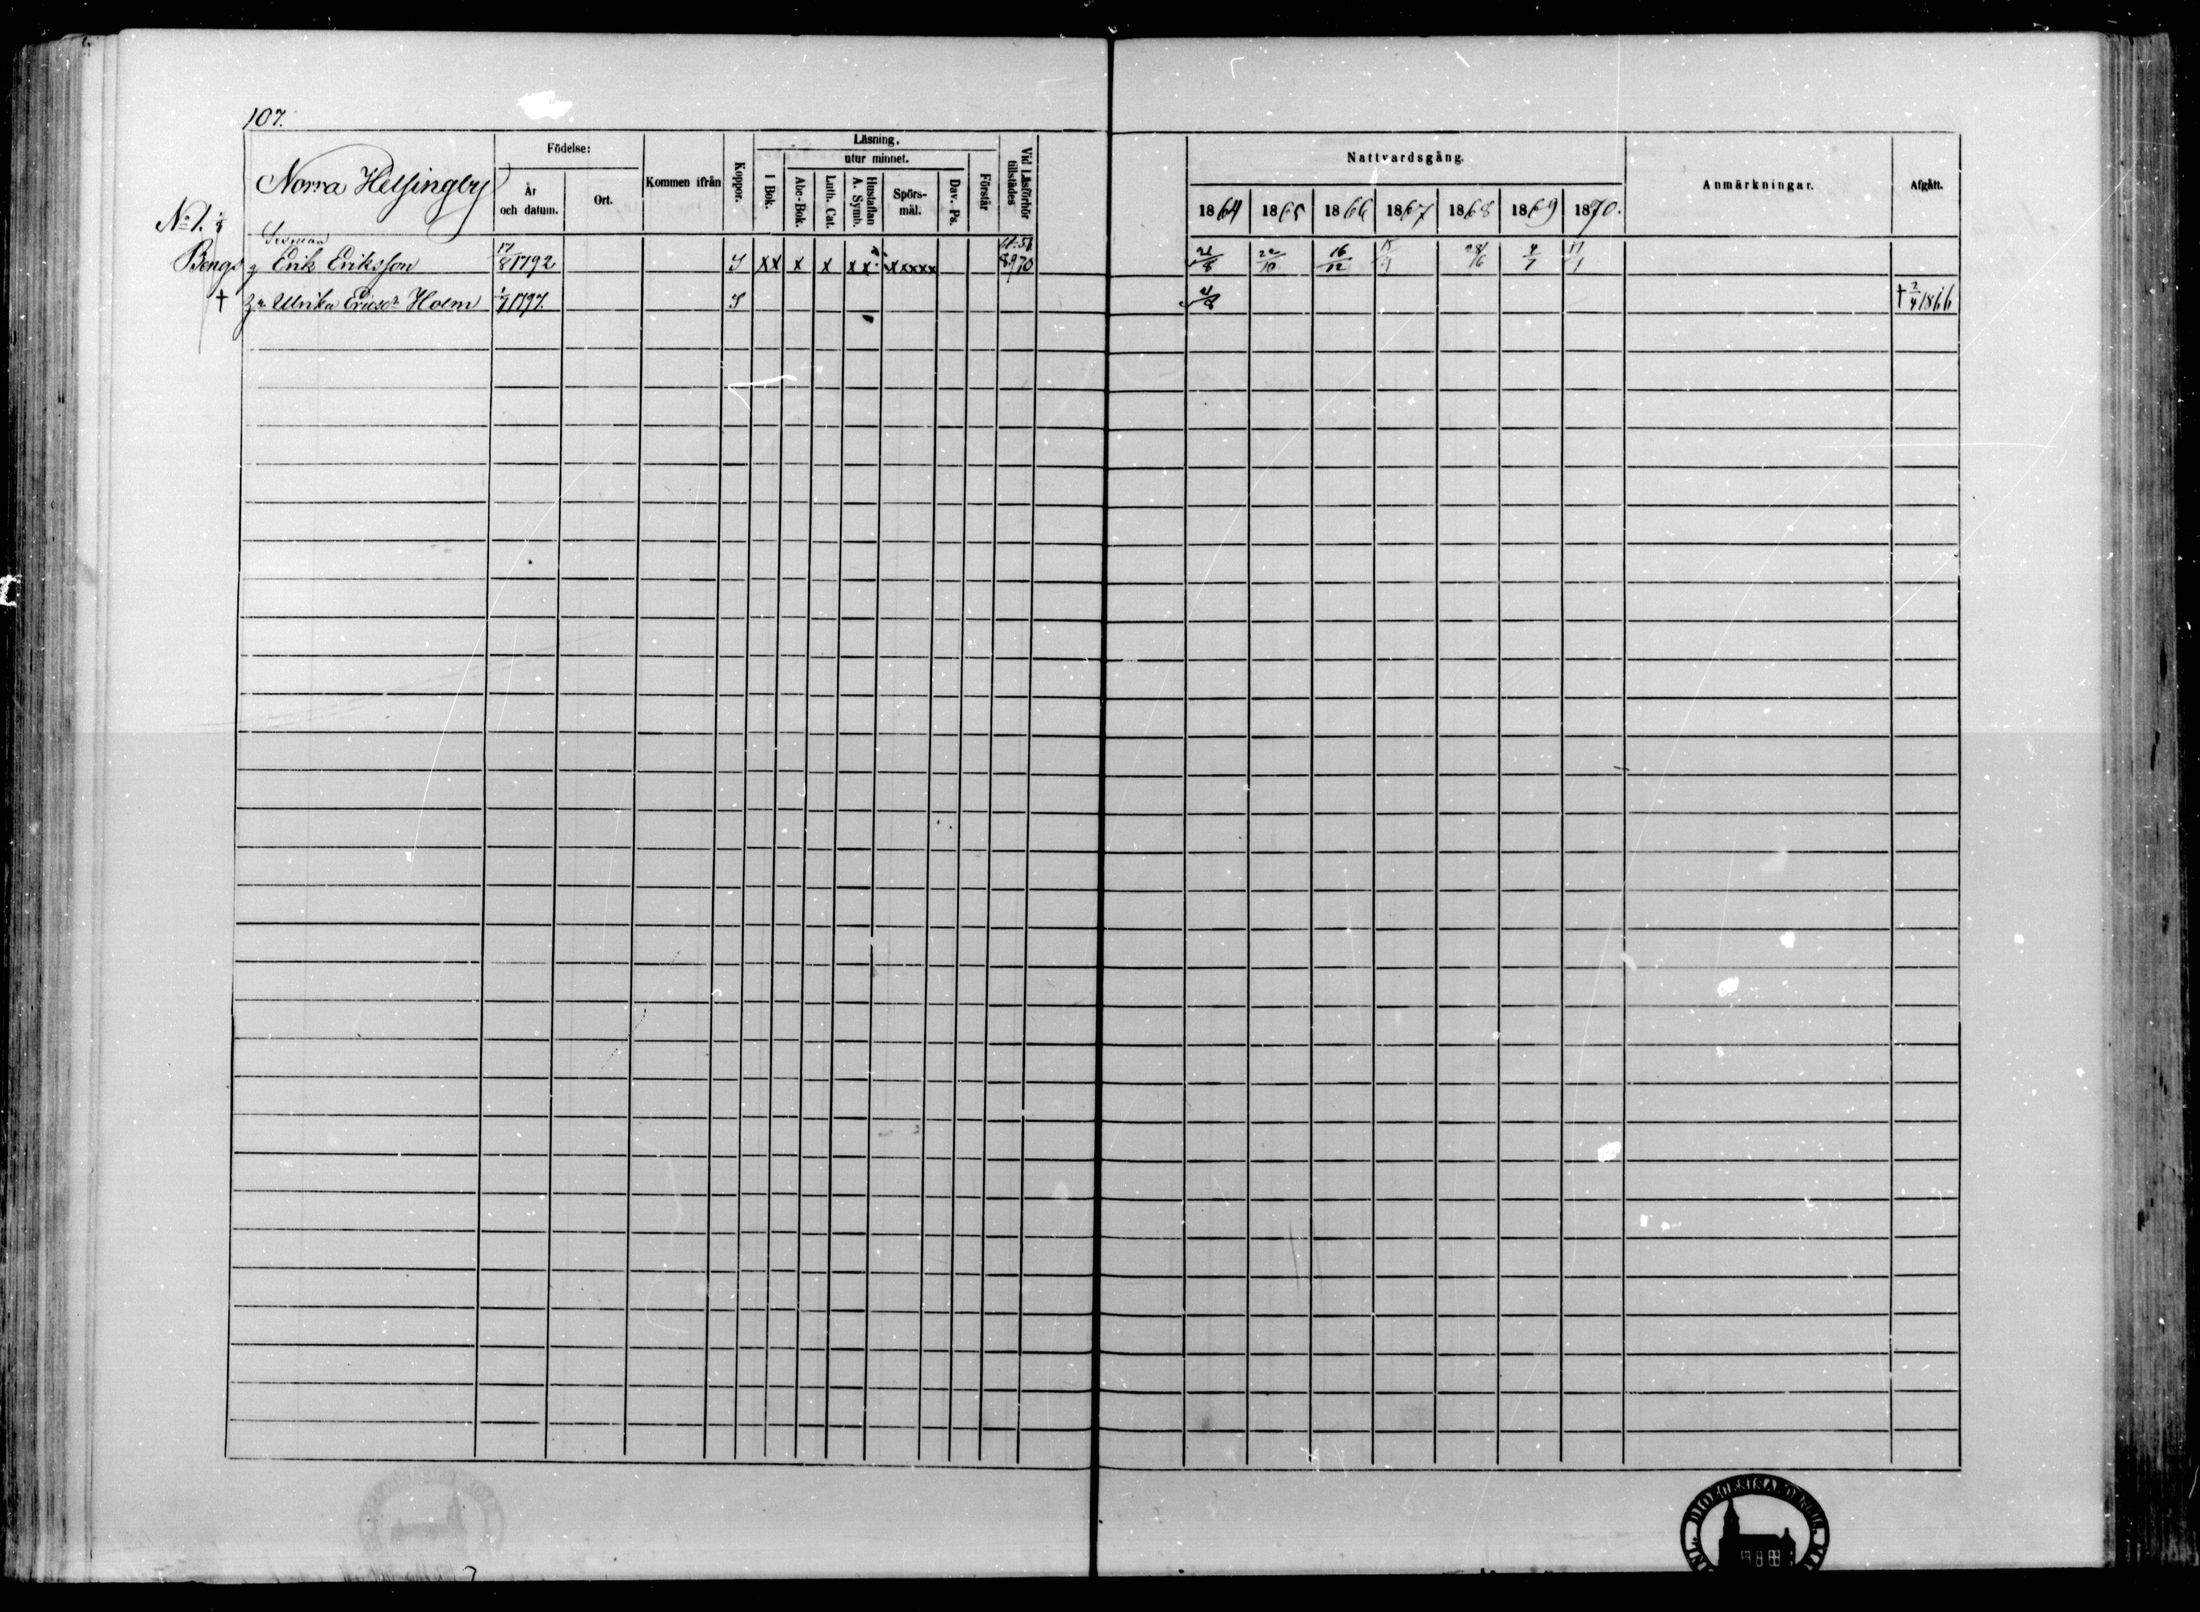 107.
Norra Helsingby
Födelse:
År och datum.
Ort.
Kommen ifrån
Koppor.
Läsning.
I Bok.
utur minnet.
Abc-Bok.
Luth. Cat.
Hustaflan A. Symb.
Spörs-mål.
Dav. Ps.
Förstår
Vid Läsförhör tillstädes
Nattvardsgång.
1864 1865 1866 1867 1868 1869 1870.
Anmärkningar.
Afgått.
No 1.
Sexman
Bengs Erik Eriksson 17/8 1792 S xx x x xx xxxxx 21/8 22/10 16/12
† Ulrika Ericsdr Holm 1797. S 21/8 † 2/4 1866